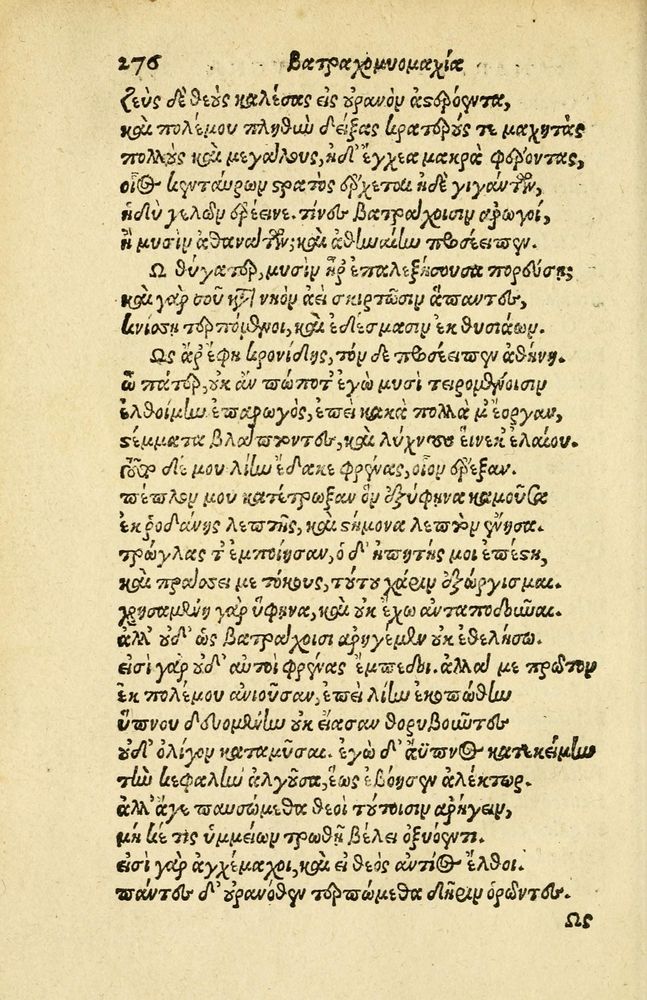 276 Βατραχομυομαχία
Ζεὺς δὲ θεοὺς καλέσας εἰς οὐρανὸν ἀστερόεντα,
καὶ πολέμου πληθὺν δείξας κρατερούς τε μαχητὰς
πολλοὺς καὶ μεγάλους, ἠδ' ἔγχεα μακρὰ φέροντας,
οἷος κενταύρων στρατὸς ἔρχεται ἠδὲ γιγάντων,
ἡδὺ γελῶν ἐρέεινε. τίνες Βατράχοισιν ἀρωγοί,
ἢ μυσὶν ἀθανάτων; καὶ ἀθηναίην προσέειπεν.
Ω θύγατερ, μυσὶν ἦρ ἐπαλεξήσουσα πορεύσῃ;
καὶ γὰρ σοῦ κατὰ νηὸν ἀεὶ σκιρτῶσιν ἅπαντες,
κνίσσῃ τερπόμενοι, καὶ ἐδέσμασιν ἐκ θυσιάων.
Ως ἄρ ἔφη κρονίδης, τὸν δὲ προσέειπεν ἀθήνη.
ὦ πάτερ, οὐκ ἂν πώποτ' ἐγὼ μυσὶ τειρομένοισιν
ἐλθοίμην ἐπαρωγός, ἐπεὶ κακὰ πολλὰ μ' ἔοργαν,
στέμματα βλάπτοντες, καὶ λύχνους εἵνεκ' ἐλαίου.
τοῦτο δέ μου λίην ἔδακε φρένας, οἷον ἔρεξαν.
πέπλον μου κατέτρωξαν ὃν ἐξύφηνα καμοῦσα
ἐκ ῥοδάνης λεπτῆς, καὶ στήμονα λεπτὸν ἔνησα.
τρώγλας τ' ἐμποίησαν, ὁ δ' ἠπητής μοι ἐπέστη,
καὶ πράσσει με τόκους, τούτου χάριν ἐξώργισμαι.
χρησαμένη γὰρ ὕφηνα, καὶ οὐκ ἔχω ἀνταποδοῦναι.
ἀλλ' οὐδ' ὣς Βατράχοισι ἀρηγέμεν οὐκ ἐθελήσω.
εἰσὶ γὰρ οὐδ' αὐτοὶ φρένας ἔμπεδοι. ἀλλά με πρῶτον
ἐκ πολέμου ἀνιοῦσαν, ἐπεὶ λίην ἐκοπώθην
ὕπνου δευομένην οὐκ εἴασαν θορυβοῦντες
οὐδ' ὀλίγον καταμῦσαι. ἐγὼ δ' ἄϋπνος κατεκείμην
τὴν κεφαλὴν ἀλγοῦσα, ἕως ἐβόησεν ἀλέκτωρ.
ἀλλ' ἄγε παυσώμεθα θεοὶ τούτοισιν ἀρήγειν,
μή κέ τις ὑμμείων τρωθῇ βέλει ὀξυόεντι.
εἰσὶ γὰρ ἀγχέμαχοι, καὶ εἰ θεὸς ἀντίος ἔλθοι.
πάντες δ' οὐρανόθεν τερπώμεθα δῆριν ὁρῶντες.
Ως